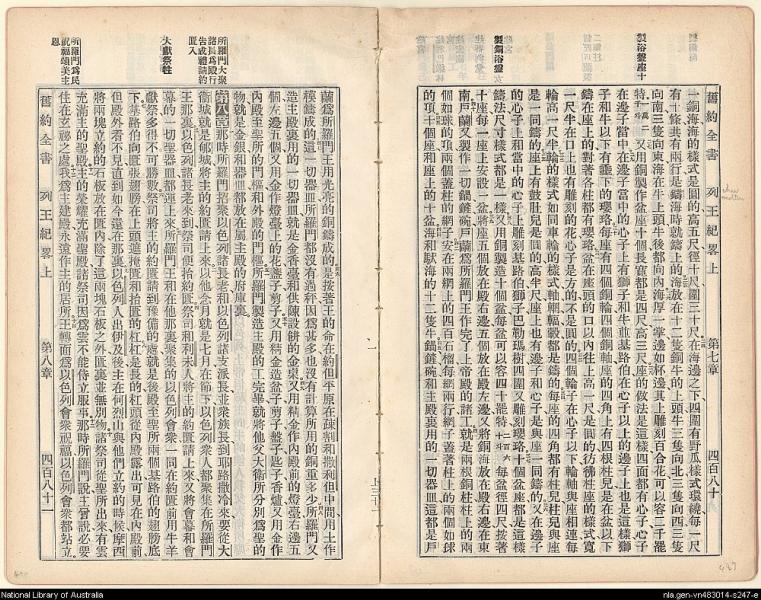 製浴盤座十
製銅浴盤
舊約全書 列王紀畧上 第七章 四百八十
一銅海海的樣式是圓的高五尺徑十尺圍三十尺在海邊之下四圍有野瓜樣式環繞每一尺
有十條共有兩行是鑄海時就鑄上的海放在十二隻銅牛的上頭牛三隻向北三隻向西三隻
向南三隻向東海在牛上頭牛後都向內海厚一掌邊如杯邊其上雕刻百合花可以容二千罷
特又用銅製作盆座十個長寬都是四尺高三尺座的做法是這樣四面都有心子心子
在邊子當中在邊子當中的心子上有獅子和牛並基路伯在心子以上的邊子上也是這樣獅
子和牛以下有垂下的瓔珞每座有四個銅輪四個銅軸座的四角上有四根柱兒是在盆以下
鑄在座上的對著各柱都有瓔珞盆在座頭的口以內往上高一尺是圓的彷彿座的樣式寬
一尺半在口上也有雕刻的花心子是方的不是圓的四個輪子在心子以下輪軸與座相連每
輪高一尺半輪的樣式如同車輪的樣式軸輞輻轂都是鑄的每座的四角都有柱兒柱兒與座
是一同鑄的座上有鼓肚兒是圓的高半尺座上也有邊子和心子是與座一同鑄的又在邊子
的心子上和當中的心子上雕刻基路伯獅子巴勒瑪樹四圍又雕刻瓔珞十個盆座都是這樣
鑄法尺寸樣式都是一樣又用銅製造十個盆每盆可以容四十罷特每盆徑四尺按著
十座每一座上安設一盆將座五個放在殿右邊五個放在殿左邊又將銅海放在殿右邊在東
南戶蘭又製作一切鍋鏟碗戶蘭爲所羅門王作完了上帝殿的諸工就是兩根銅柱柱上的
的頂十個座和座上的十盆海和馱海的十二隻牛鍋鏟碗和主殿裏用的一切器皿這都是戶
所羅門大聚
諸長爲殿行
告成禮請約
匱入
大獻祭牲
所羅門爲民
祝福頌美主
恩
蘭爲所羅門王用光亮的銅鑄成的是按著王的命在約但平原在疎割和撒利但中間用土作
模鑄成的這一切器皿所羅門都沒有過秤因爲甚多也沒有計算所用的銅重多少所羅門又
造主殿裏用的一切器皿就是金香臺和供陳設餅的金桌又用精金作內殿前的燈臺右邊五
個左邊五個又用金作燈臺上的花蘤子剪子又用精金造盆子剪子盤子匙子香爐又用金作
內殿至聖所的門樞和外殿的門樞所羅門製造主殿的工完畢就將他父大衛所分別爲聖的
物就是金銀和器皿都放在屬主殿的府庫裏
第八章那時所羅門招聚以色列諸長老和以色列諸支派長並衆族長到耶路撒冷來要從大
衛城就是郇城將主的約匱請上來以他念月就是七月在節下以色列衆人都聚集在所羅門
王那裏以色列諸長老來到祭司便抬約匱祭司和利未人將主的約匱請上來又將會幕和會
幕的一切聖器皿都運上來所羅門王和在他那裏聚集的以色列會衆一同在約匱前用牛羊
獻祭多得不可勝數祭司將主的約匱請到豫備的處就是後殿至聖所兩個基路伯的翅膀底
下基路伯向匱張翅膀在上頭遮掩匱和抬匱的杠杠是長的杠頭從內殿露出可見在內殿前
但殿外看不見直到如今還在那裏以色列人出伊及後主在何烈山與他們立約的時候摩西
將兩塊立約的石板放在匱內除了這兩塊石板之外匱裏並無別物諸祭司從聖所出來有雲
充滿主的聖殿主的榮耀充滿聖殿諸祭司因爲雲不能侍立服事那時所羅門說主曾說必要
住在玄祕之處我爲主建殿永遠作主的居所王轉面爲以色列會衆祝福以色列會衆都站立
舊約全書 列王紀畧上 第八章 四百八十一
National Library of Australia
nla.gen-vn483014-s247-e